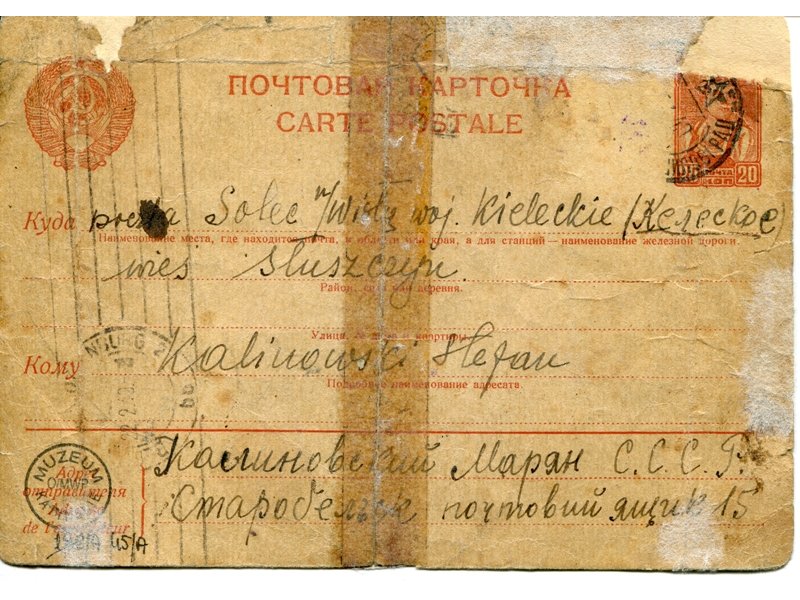 ПОЧТОВАЯ КАРТОЧКА
CARTE POSTALE
ПОЧТА
20 КОП
Куда poczta Solec n/Wisłą woj. Kieleckie (Келеское)
Наименование места, где находится почта, и области или края, а для станций — наименование железной дороги.
wieś Słuszczyn
Район, село или деревня.
Улица, № дома и квартиры.
Кому Kalinowski Stefan
Подробное наименование адресата.
Калиновский Марян С.С.С.Р.
Адрес отправителя
Старобельск почтовий ящик 15
de l'expéditeur
MUZEUM
O/MWP
45/A